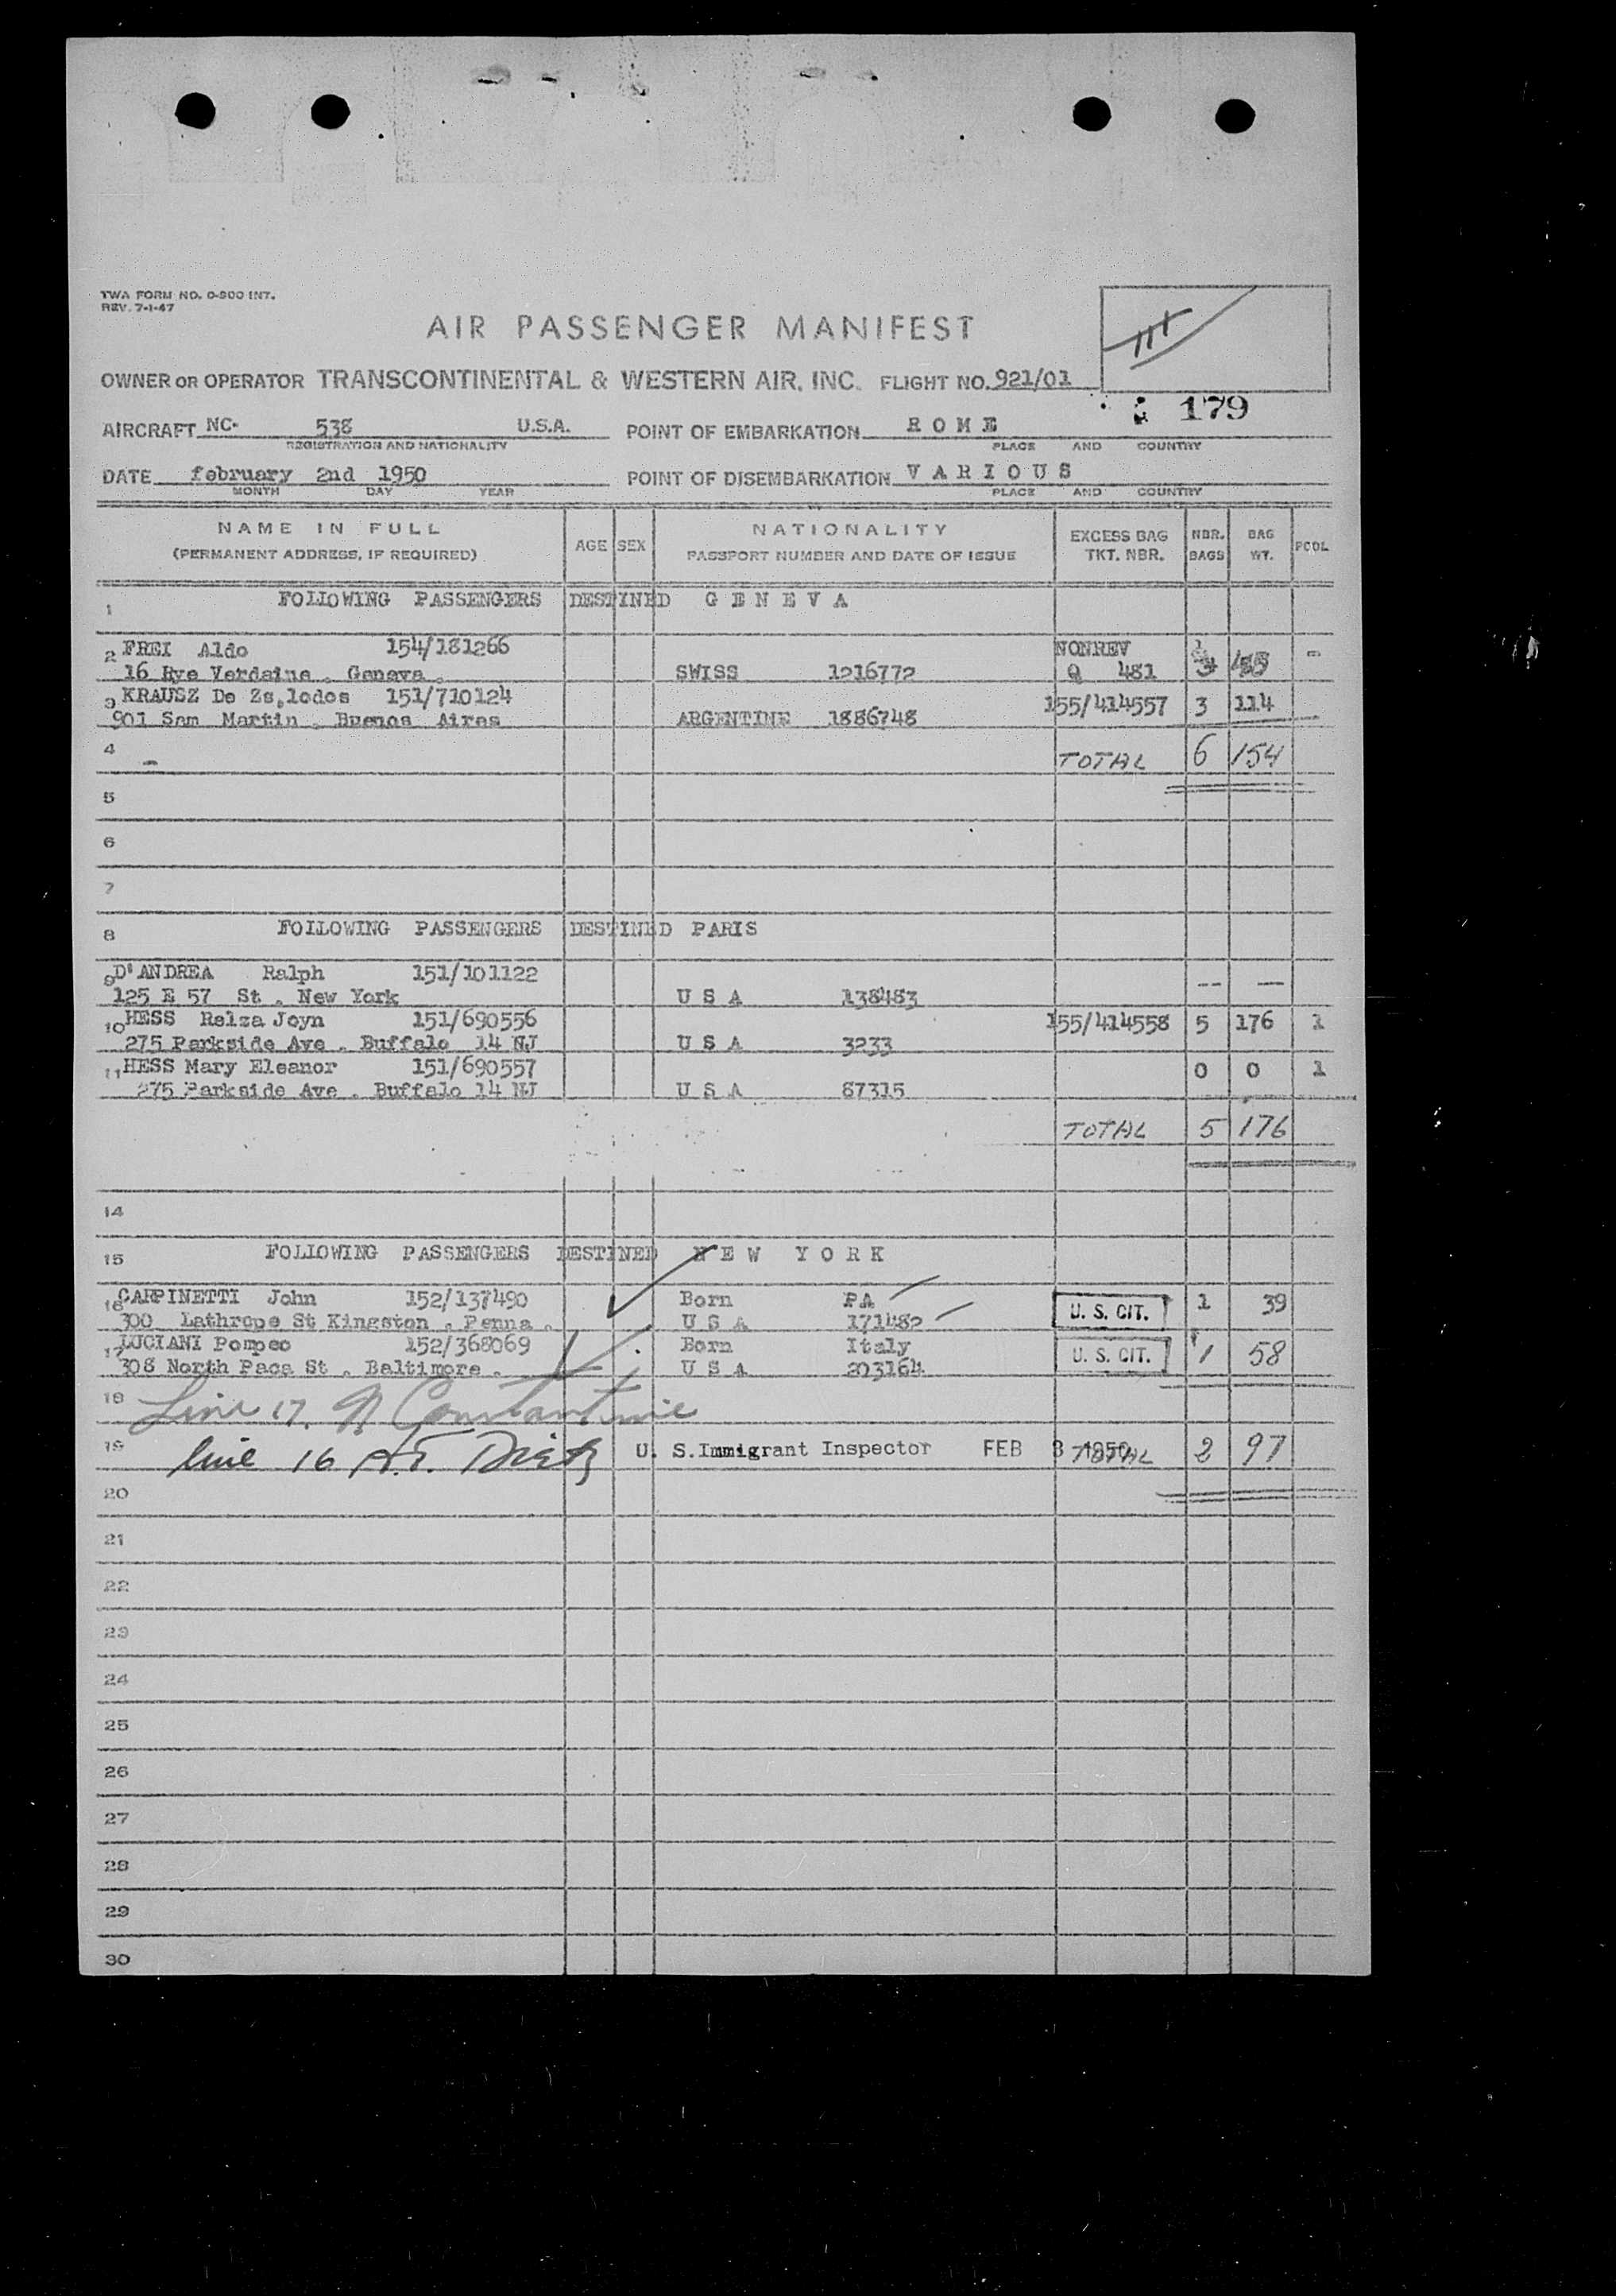 TWA FORM NO. O-900 INT.
REV. 7-1-47
AIR PASSENGER MANIFEST
OWNER OR OPERATOR TRANSCONTINENTAL & WESTERN AIR, INC. FLIGHT NO. 921/01
179
AIRCRAFT NC- 538 U.S.A. POINT OF EMBARKATION ROME
REGISTRATION AND NATIONALITY PLACE AND COUNTRY
DATE february 2nd 1950 POINT OF DISEMBARKATION VARIOUS
MONTH DAY YEAR PLACE AND COUNTRY
NAME IN FULL AGE SEX NATIONALITY EXCESS BAG NBR. BAG PCDL
(PERMANENT ADDRESS, IF REQUIRED) PASSPORT NUMBER AND DATE OF ISSUE TKT. NBR. BAGS WT.
1 FOLLOWING PASSENGERS DESTINED GENEVA
2 FREI Aldo 154/181266 NONREV -
16 Rye Verdaine . Geneva . SWISS 1216772 Q 481
3 KRAUSZ De Zs,lodos 151/710124 155/414557 3 114
901 Sam Martin . Buenos Aires ARGENTINE 1886748
4 - TOTAL 6 154
5
6
7
8 FOLLOWING PASSENGERS DESTINED PARIS
9 D'ANDREA Ralph 151/101122 -- --
125 E 57 St . New York U S A 138483
10 HESS Relza Joyn 151/690556 155/414558 5 176 1
275 Parkside Ave . Buffalo 14 NJ U S A 3233
11 HESS Mary Eleanor 151/690557 0 0 1
275 Parkside Ave . Buffalo 14 NJ U S A 87315
TOTAL 5 176
14
15 FOLLOWING PASSENGERS DESTINED NEW YORK
16 CARPINETTI John 152/137490 Born PA U. S. CIT. 1 39
300 Lathrope St Kingston . Penna . U S A 171482
17 LUCIANI Pompeo 152/368069 Born Italy U. S. CIT. 1 58
308 North Paca St . Baltimore . U S A 203164
18 Line 17. N Constantine
19 line 16 A.T. Dietz U. S.Immigrant Inspector FEB 3 1950 TOTAL 2 97
20
21
22
23
24
25
26
27
28
29
30